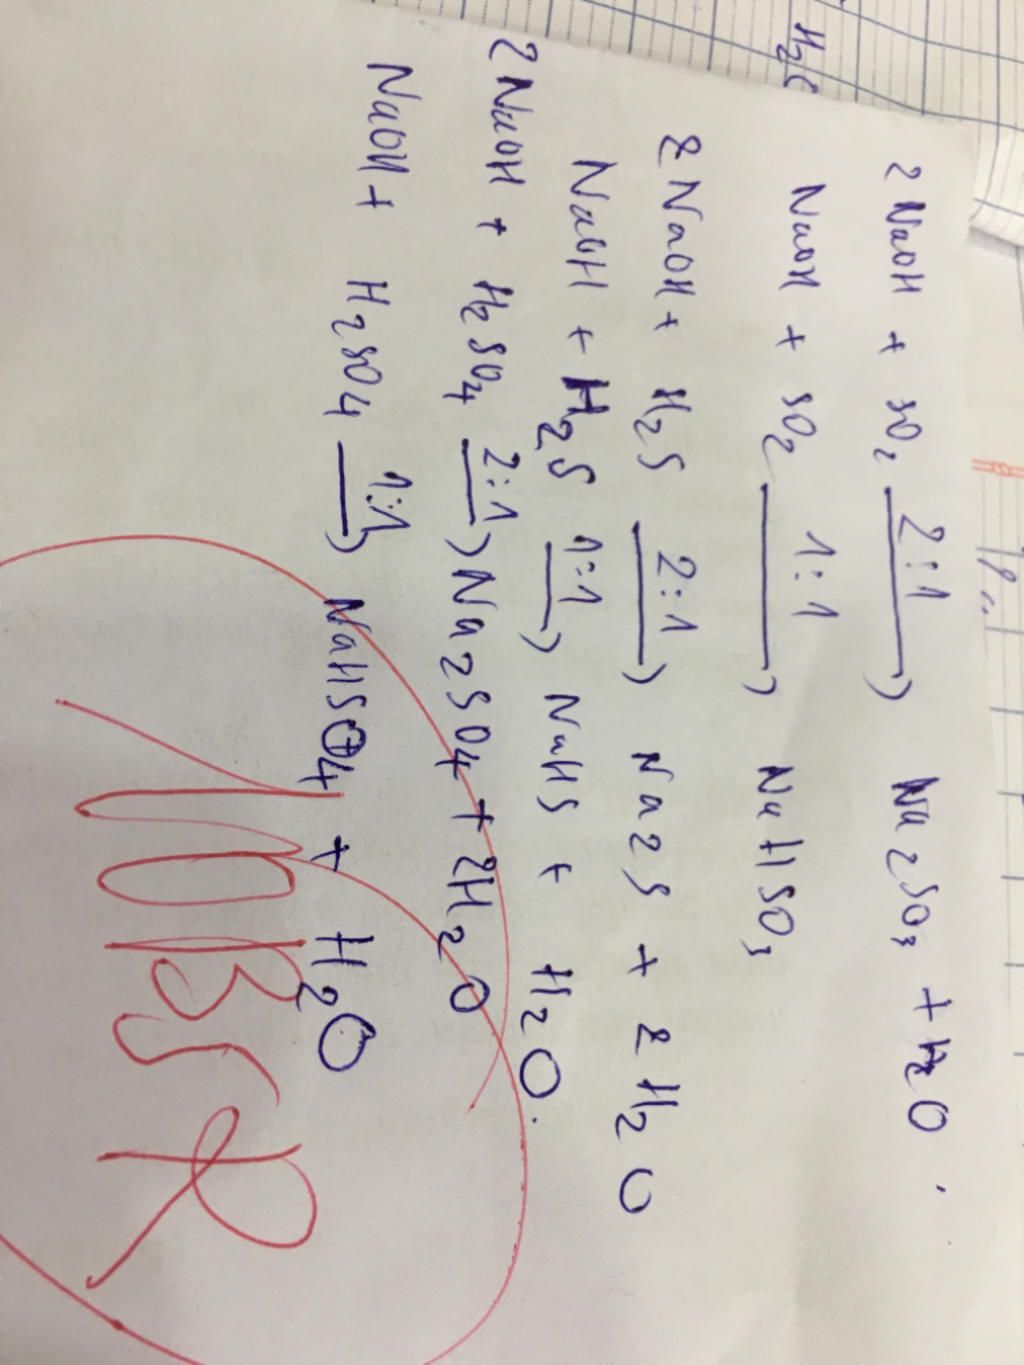 2NaOH + SO2 2:1 → Na2SO3 + H2O.
NaOH + SO2 1:1 → NaHSO3
2NaOH + H2S 2:1 → Na2S + 2H2O
NaOH + H2S 1:1 → NaHS + H2O.
2NaOH + H2SO4 2:1 → Na2SO4 + 2H2O
NaOH + H2SO4 1:1 → NaHSO4 + H2O